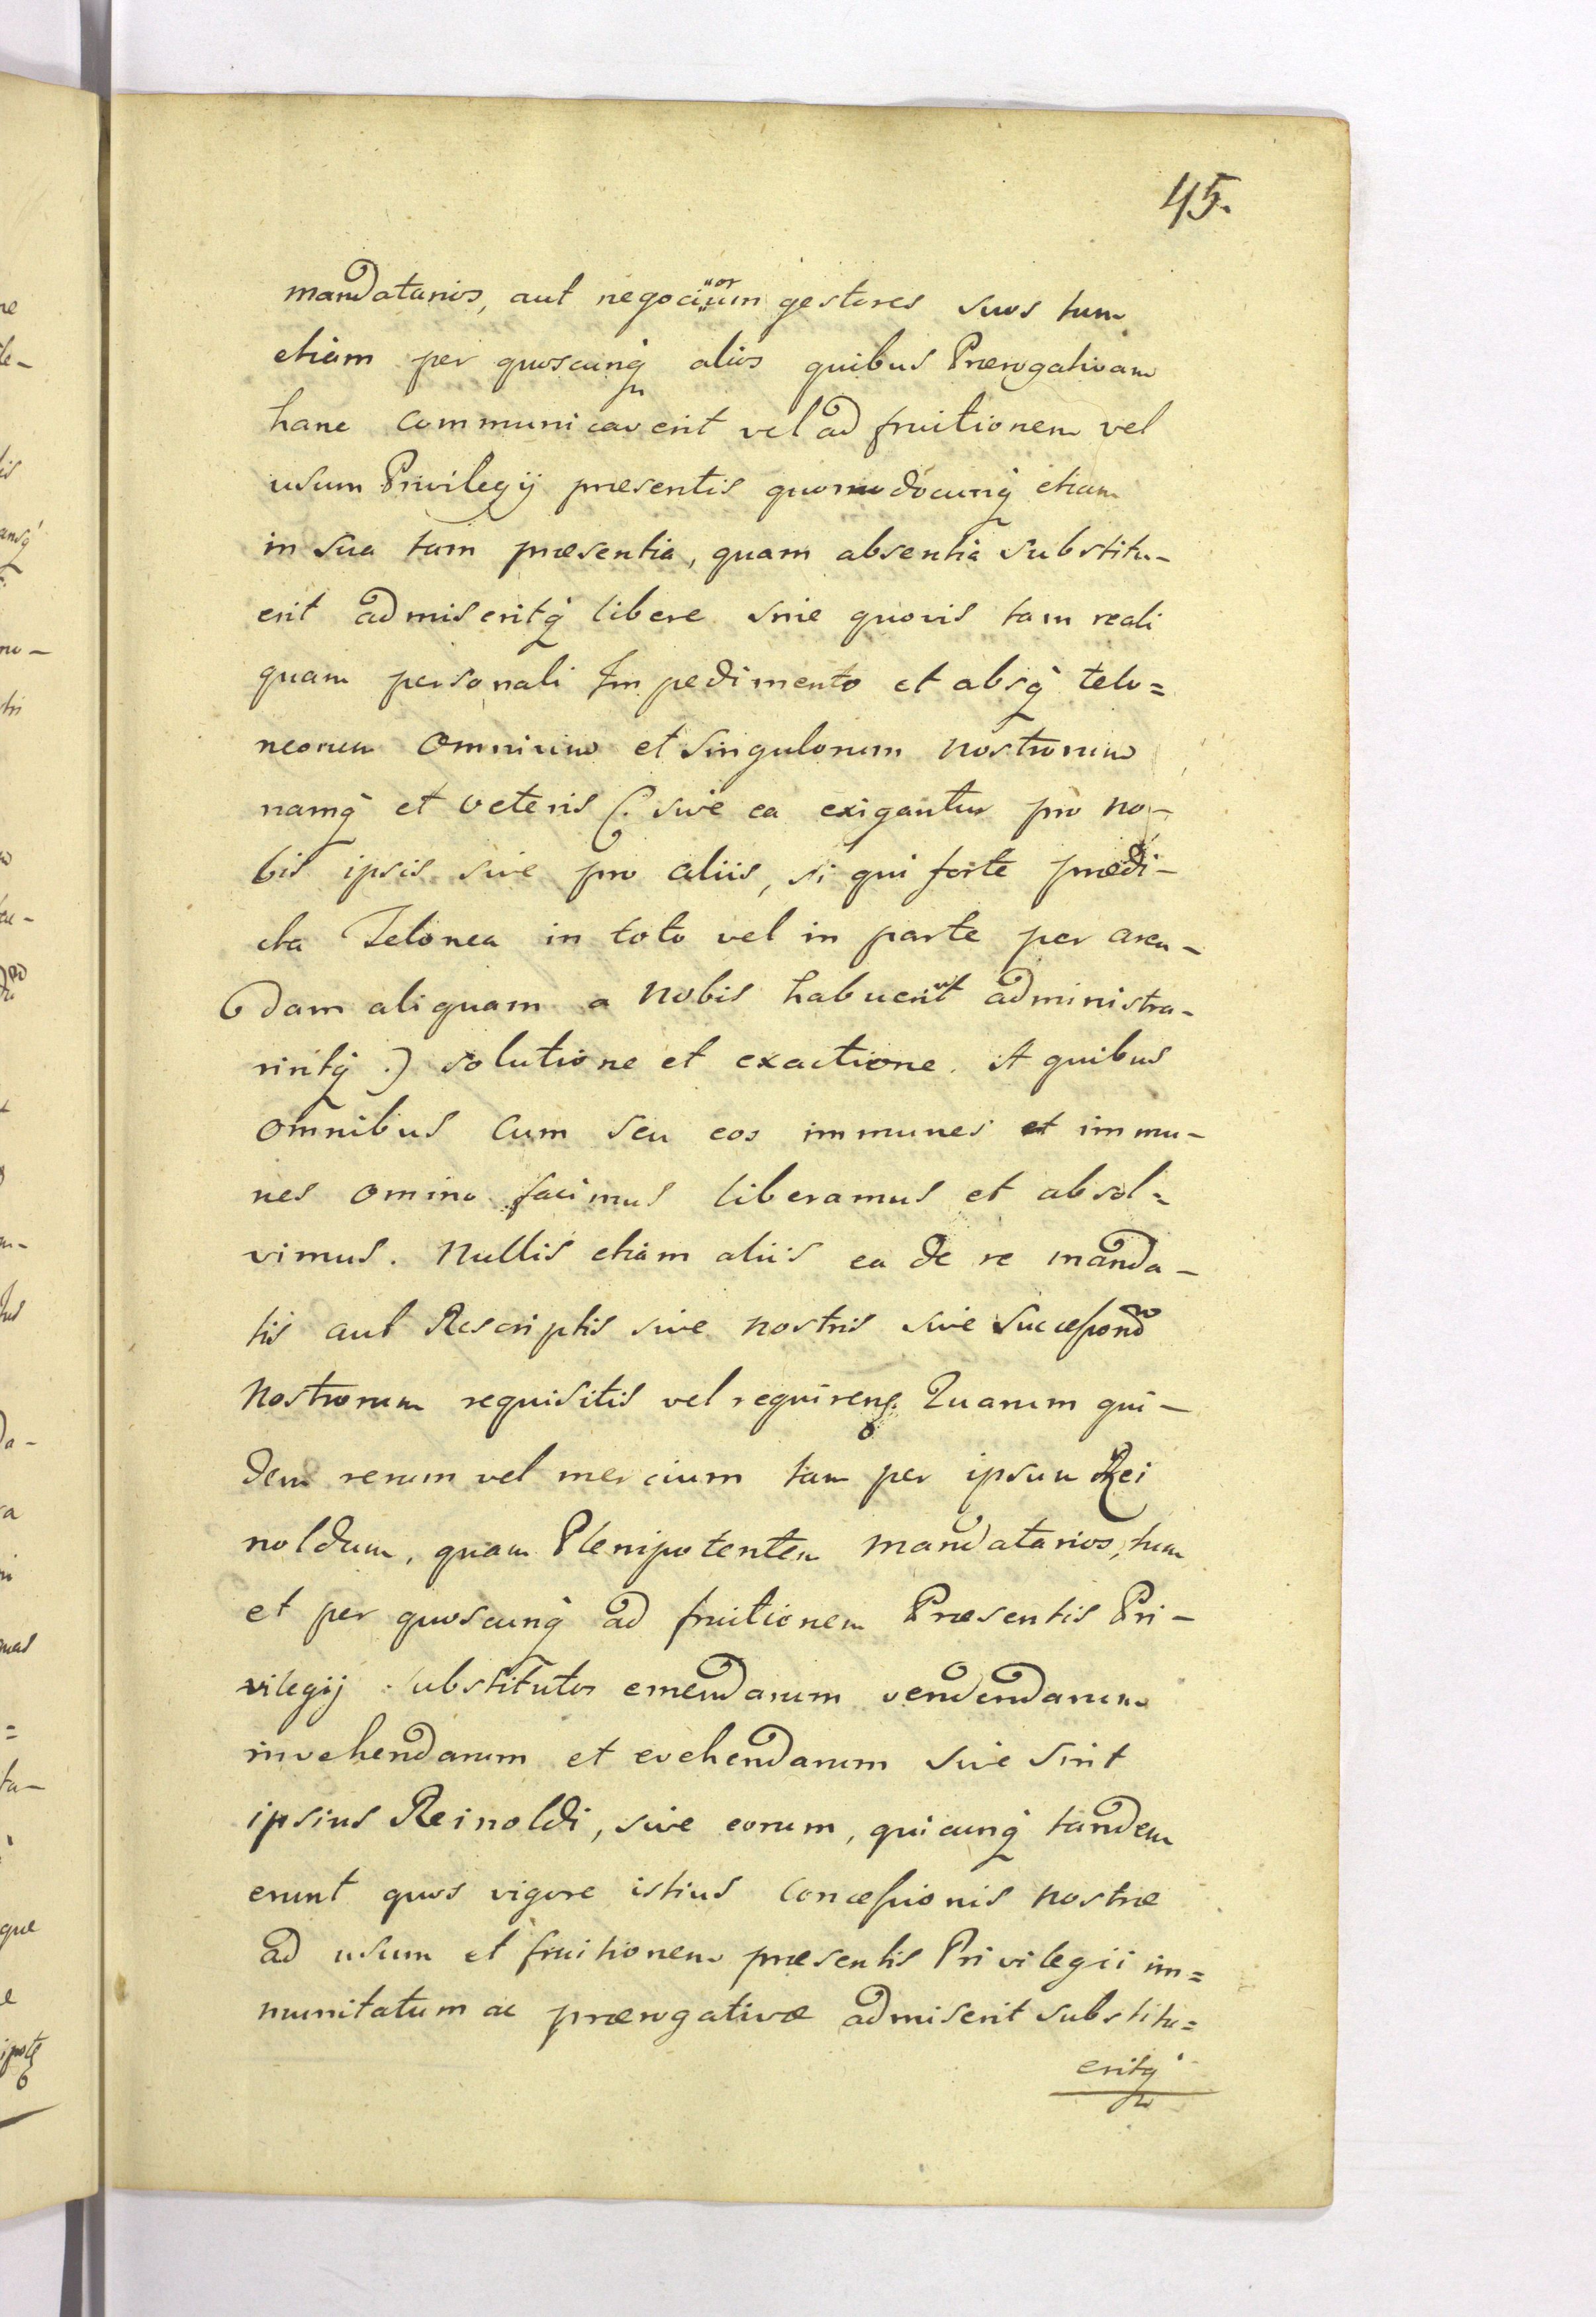 45.
mandatarios, aut negociorum gestores suos tum
etiam per quoscunq alios quibus Prærogativam
hanc communicaverit vel ad fruitionem vel
usum Privilegij præsentis quomodocunq etiam
in sua tam præsentia, quam absentia substitu-
erit admiseritq libere sine quovis tam reali
quam personali Impedimento et absq telo=
neorum omnium et singulorum nostrorum
namq et veteris (. sive ea exigantur pro no-
bis ipsis sive pro aliis, si qui forte prædi-
cta Telonea in toto vel in parte per aren-
dam aliquam a nobis habuerint administra-
rintq .) solutione et exactione. A quibus
omnibus cum seu eos immunes et immu-
nes omino facimus liberamus et absol=
vimus. Nullis etiam aliis ea de re manda-
tis aut Rescriptis sive nostris sive
Nostrorum requisitis vel requirens. Quarum qui-
dem rerum vel mercium tam per ipsum Rei
noldum, quam Plenipotentem mandatarios, tum
et per quoscunq ad fruitionem Præsentis Pri-
vilegij substitutos emendarum vendendarum
invehendarum et evehendarum sive sint
ipsius Reinoldi, sive eorum, quicunq tandem
erunt quos vigore istius concessionis nostræ
ad usum et fruitionem præsentis Privilegii im=
munitatum ac prærogativæ admiserit substitu=
eritq